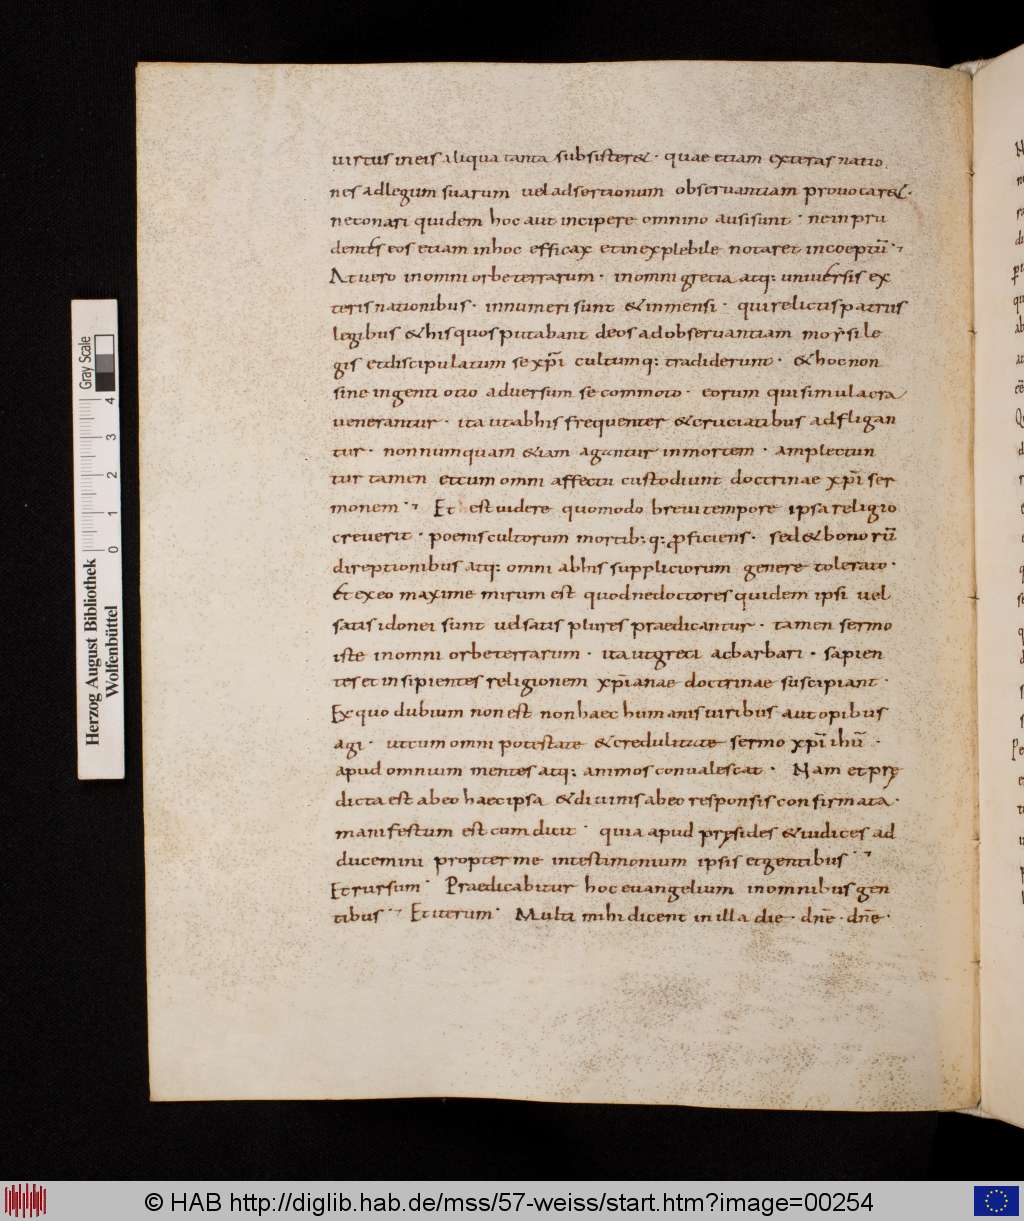 uirtus ineis aliqua tanta subsister&· quae etiam exteras natio
nes adlegum suarum uel adsertionum obseruantiam prouocar&·
neconari quidem hoc aut incipere omnino ausi sunt · ne inpru
dentes eos etiam inhoc efficax et inexplebile notaret incoeptū·
At uero in omni orbe terrarum · in omni grecia atq: uniuersis ex
teris nationibus · innumeri sunt & inmensi · qui relictis patriis
legibus & his quos putabant deos ad obseruantiam moysi le
gis et discipulatum se xp̄i cultumq: tradiderunt · & hoc non
sine ingenti otio aduersum se commoto · eorum qui simulacra
uenerantur · ita ut abhis frequenter & cruciatibus adfligan
tur · nonnumquam &iam agantur in mortem · amplectun
tur tamen et cum omni affectu custodiunt doctrinae xp̄i ser
monem · Et est uidere quomodo breui tempore ipsa religio
creuerit · poenis cultorum mortib:q: proficiens · sed & bonorū
direptionibus atq: omni abhis suppliciorum genere tolerato ·
Et ex eo maxime mirum est quod nedoctores quidem ipsi uel
satis idonei sunt uel satis plures praedicantur · tamen sermo
iste in omni orbe terrarum · ita ut greci ac barbari · sapien
tes et insipientes religionem xp̄ianae doctrinae suscipiant ·
Ex quo dubium non est non haec humanis uiribus aut opibus
agi · ut cum omni potestate & credulitate sermo xp̄i ihū ·
apud omnium mentes atq: animos conualescat · Nam et prę
dicta est abeo haec ipsa & diuinis abeo responsis confirmata ·
manifestum est cum dicit · quia apud pręsides & iudices ad
ducemini propter me in testimonium ipsis et gentibus ·
Et rursum · Praedicabitur hoc euangelium in omnibus gen
tibus · Et iterum · Multi mihi dicent in illa die · dn̄e · dn̄e ·
Gray Scale
0 1 2 3 4
Herzog August Bibliothek
Wolfenbüttel
© HAB http://diglib.hab.de/mss/57-weiss/start.htm?image=00254